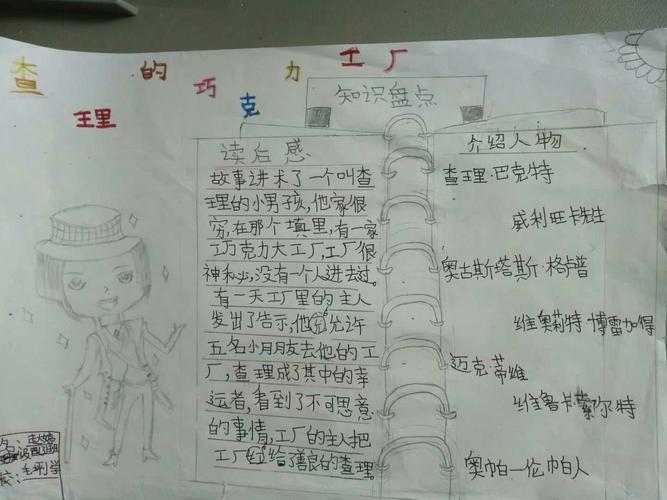 查理的巧克力工厂
知识盘点
读后感
故事讲术了一个叫查
理的小男孩,他家很
穷,在那个填里,有一家
工巧克力大工厂,工厂很
神秘,没有一个人进去过。
有一天工厂里的主人
发出了告示,他允许
五名小月朋友去他的工
厂,查理成了其中的幸
运者,看到了不可思意
的事情,工厂的主人把
工厂给了善良的查理。
介绍人物
查理·巴克特
威利旺卡先生
奥古斯塔斯·格卢普
维奥莉特 博雷加得
迈克·蒂维
维鲁卡索尔特
奥帕一伦帕人